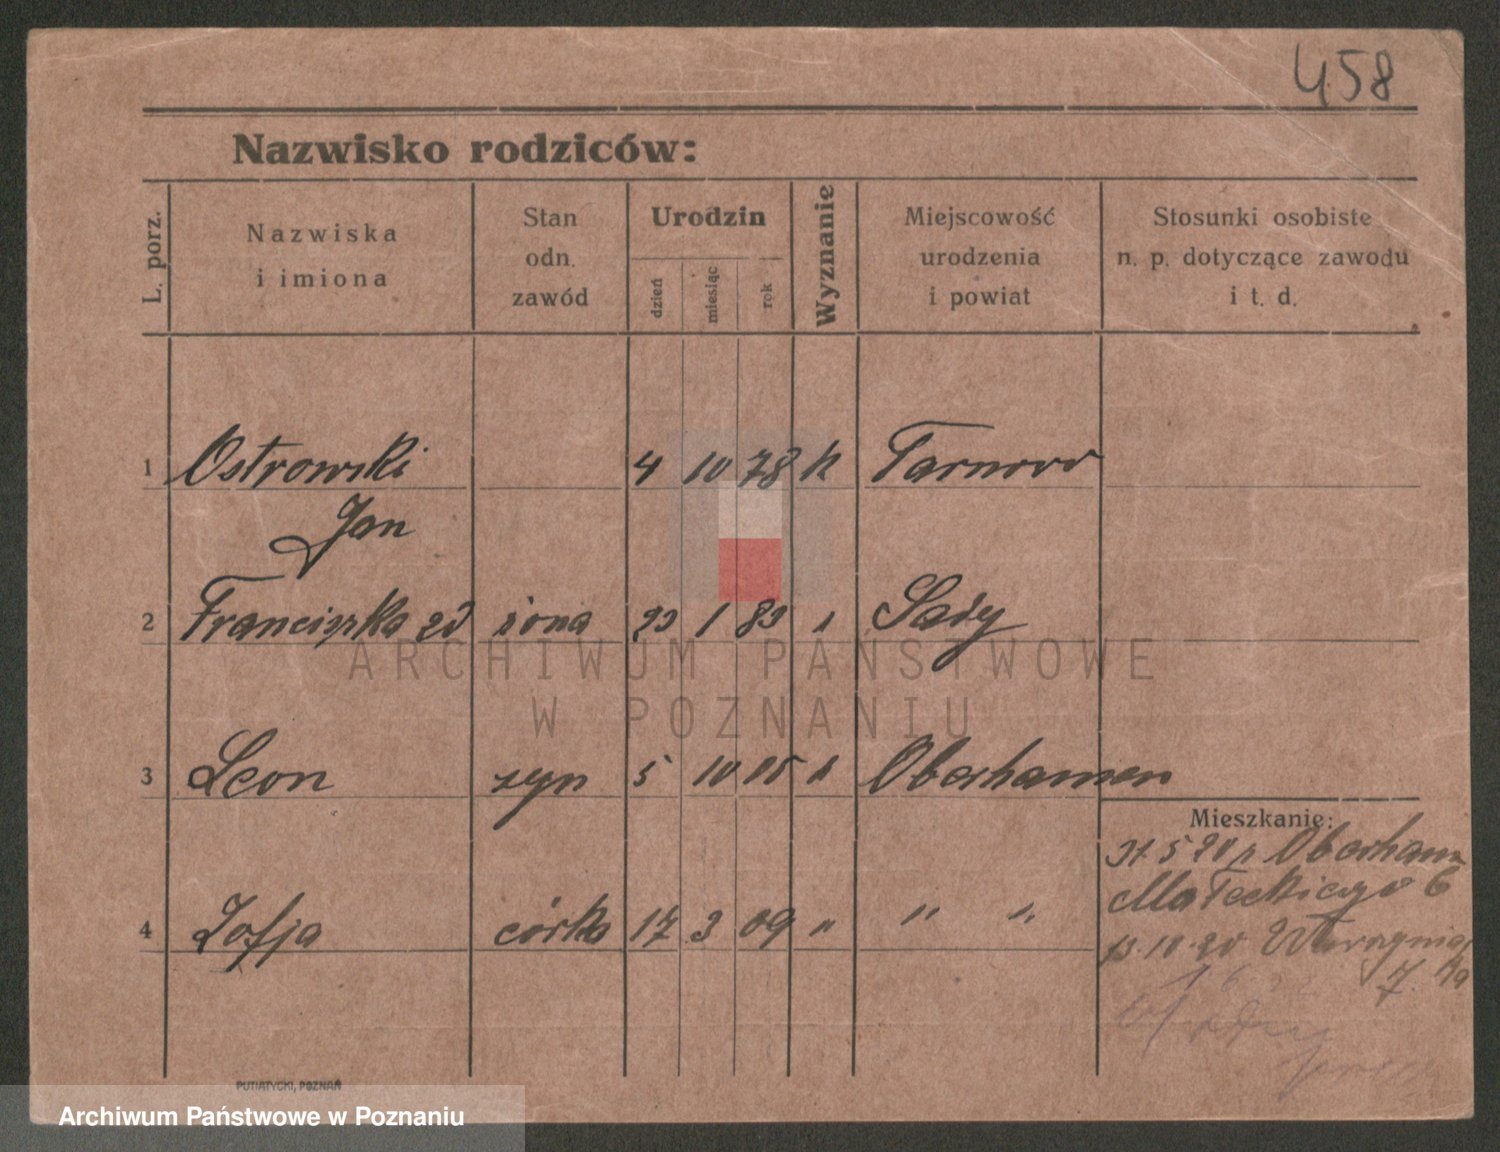 458
Nazwisko rodziców:
L. porz.
Nazwiska
i imiona
Stan
odn.
zawód
Urodzin
dzień
miesiąc
rok
Wyznanie
Miejscowość
urodzenia
i powiat
Stosunki osobiste
n. p. dotyczące zawodu
i t. d.
1 Ostrowski 4 10 78 k Tarnowo
Jan
2 Franciszka żona 1 83 Sady
3 Leon syn 5 10 05 Oberhausen
Mieszkanie:
5 20 Oberhausen
Małeckiego 6
4 Zofja córka 17 3 09 " " "
13.10.20
7.
1 6 22
PUTIATYCKI, POZNAŃ
ARCHIWUM PAŃSTWOWE
W POZNANIU
Archiwum Państwowe w Poznaniu